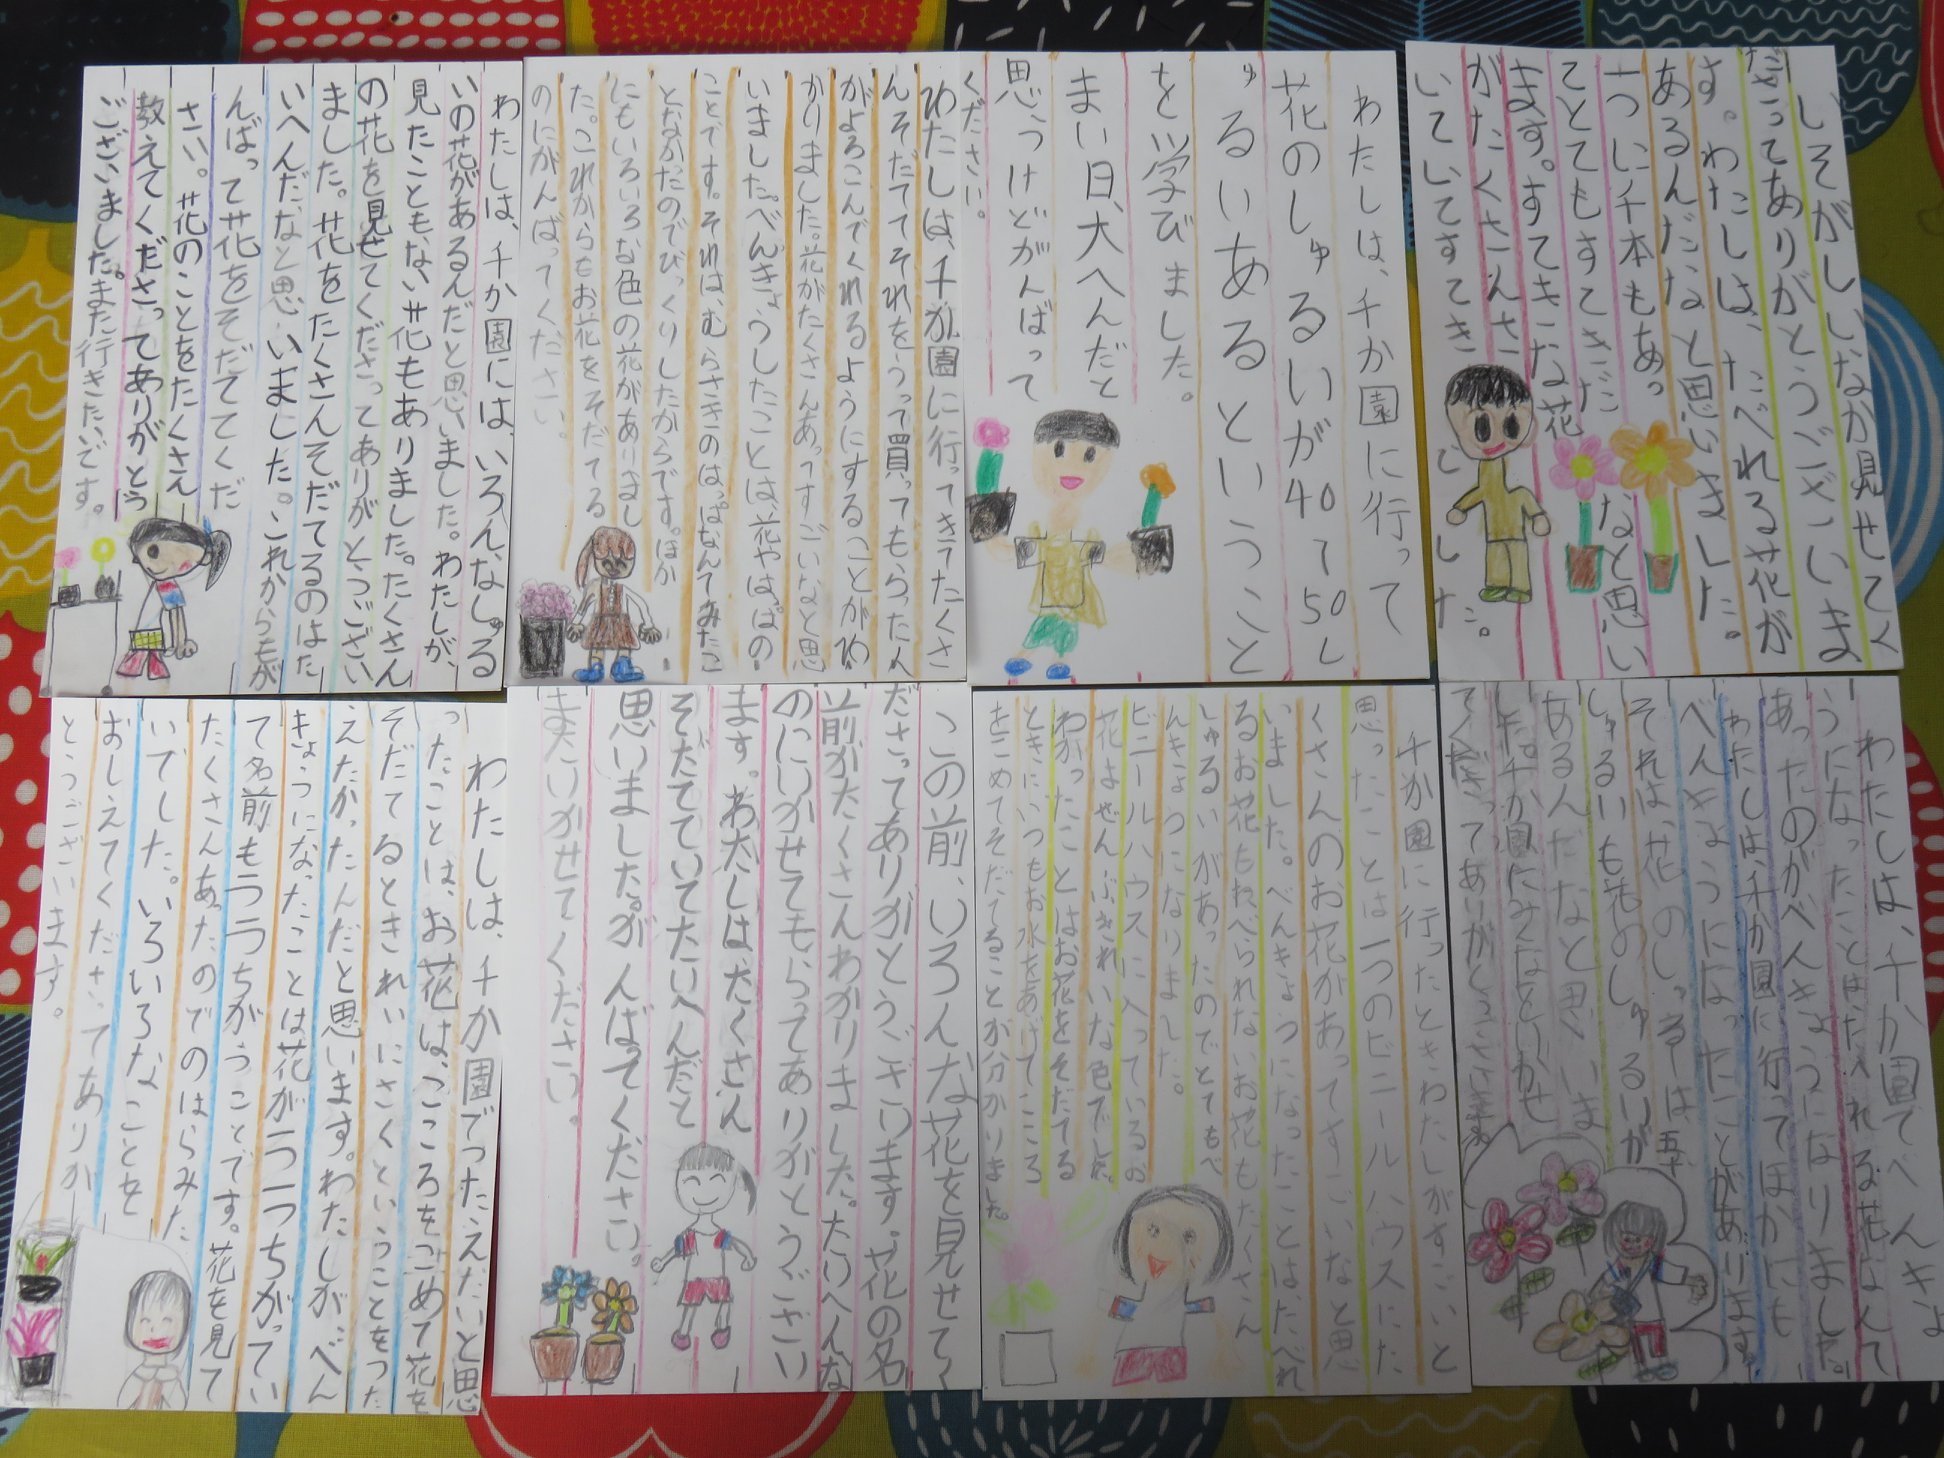 しそがしいなか見せてく
ださってありがとうございま
す。わたしは、たべれる花が
あるんだなと思いました。
一つに千本もあっ
てとてもすてきだなと思い
ます。すてきな花
がたくさんさ
いていてすてきでした。
わたしは、千か園に行って
花のしゅるいが40〜50し
ゅるいあるということ
を学びました。
まい日、大へんだと
思うけどがんばって
ください。
わたしは、千か園に行ってきてたくさ
んそだててそれをうって買ってもらった人
がよろこんでくれるようにすることがわ
かりました。花がたくさんあってすごいなと思
いました。べんきょうしたことは、花やはっぱの
ことです。それは、むらさきのはっぱなんてみたこ
となかったのでびっくりしたからです。ほか
にもいろいろな色の花がありまし
た。これからもお花をそだてる
のにがんばってください。
わたしは、千か園には、いろんなしゅる
いの花があるんだと思いました。わたしが、
見たこともない花もありました。たくさん
の花を見せてくださってありがとうござい
ました。花をたくさんそだてるのはた
いへんだなと思いました。これからもが
んばって花をそだててくだ
さい。花のことをたくさん
教えてくださってありがとう
ございました。また行きたいです。
わたしは、千か園でべんきょ
うになったことはたべれる花なんて
あったのがべんきょうになりました。
わたしは、千か園に行ってほかにも
べんきょうになったことがあります。
それは、花のしゅるーは、五十
しゅるいも花のしゅるいが
あるんだなと思いま
した。千か園にみなといかせ
てくださってありがとうございます
千か園に行ったときわたしがすごいと
思ったことは一つのビニールハウスにた
くさんのお花があってすごいなと思
いました。べんきょうになったことはたべれ
るお花もねべられないお花もたくさん
しゅるいがあったのでとてもべ
んきょうになりました。
ビニールハウスに入っているお
花はぜんぶきれいな色でした。
わかったことはお花をそだてる
ときにいつもお水をあげてこころ
をこめてそだてることが分かりました。
この前、いろんな花を見せてく
ださってありがとうございます。花の名
前がたくさんわかりました。たいへんな
のにいかせてもらってありがとうござい
ます。わたしは、たくさん
そだてていてたいへんだと
思いました。がんばってください。
またいかせてください。
わたしは、千か園でつたえたいと思
ったことは、お花は、こころをこめて花を
そだてるときれいにさくということをつた
えたかったんだと思います。わたしがべん
きょうになったことは花が一つ一つちがってい
て名前も一つ一つちがうことです。花を見て
たくさんあったのでのはらみた
いでした。いろいろなことを
おしえてくださってありが
とうございます。